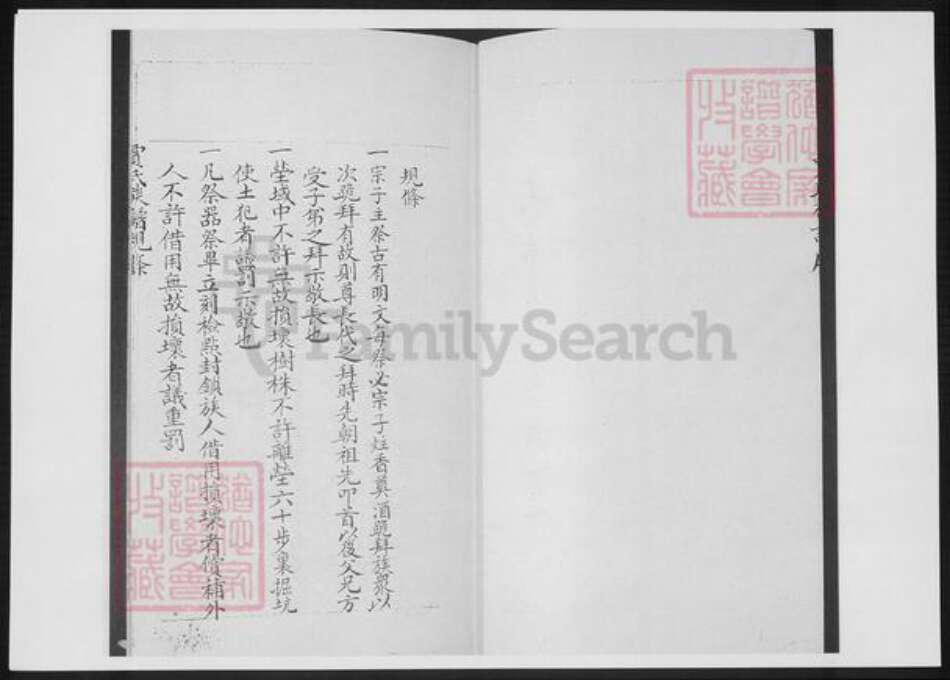 規條
一宗子主祭古有明文每祭必宗子炷香奠酒跪拜族眾以
次跪拜有故則尊長代之拜時先朝祖先叩首以後父兄方
受子弟之拜示敬長也
一塋域中不許無故損壞樹株不許離塋六十步裏掘坑
使土犯者議罰示敬也
一凡祭器祭畢立刻檢點封鎖族人借用損壞者償補外
人不許借用無故損壞者議重罰
規條
FamilySearch
譜學會
收藏
譜學會
收藏